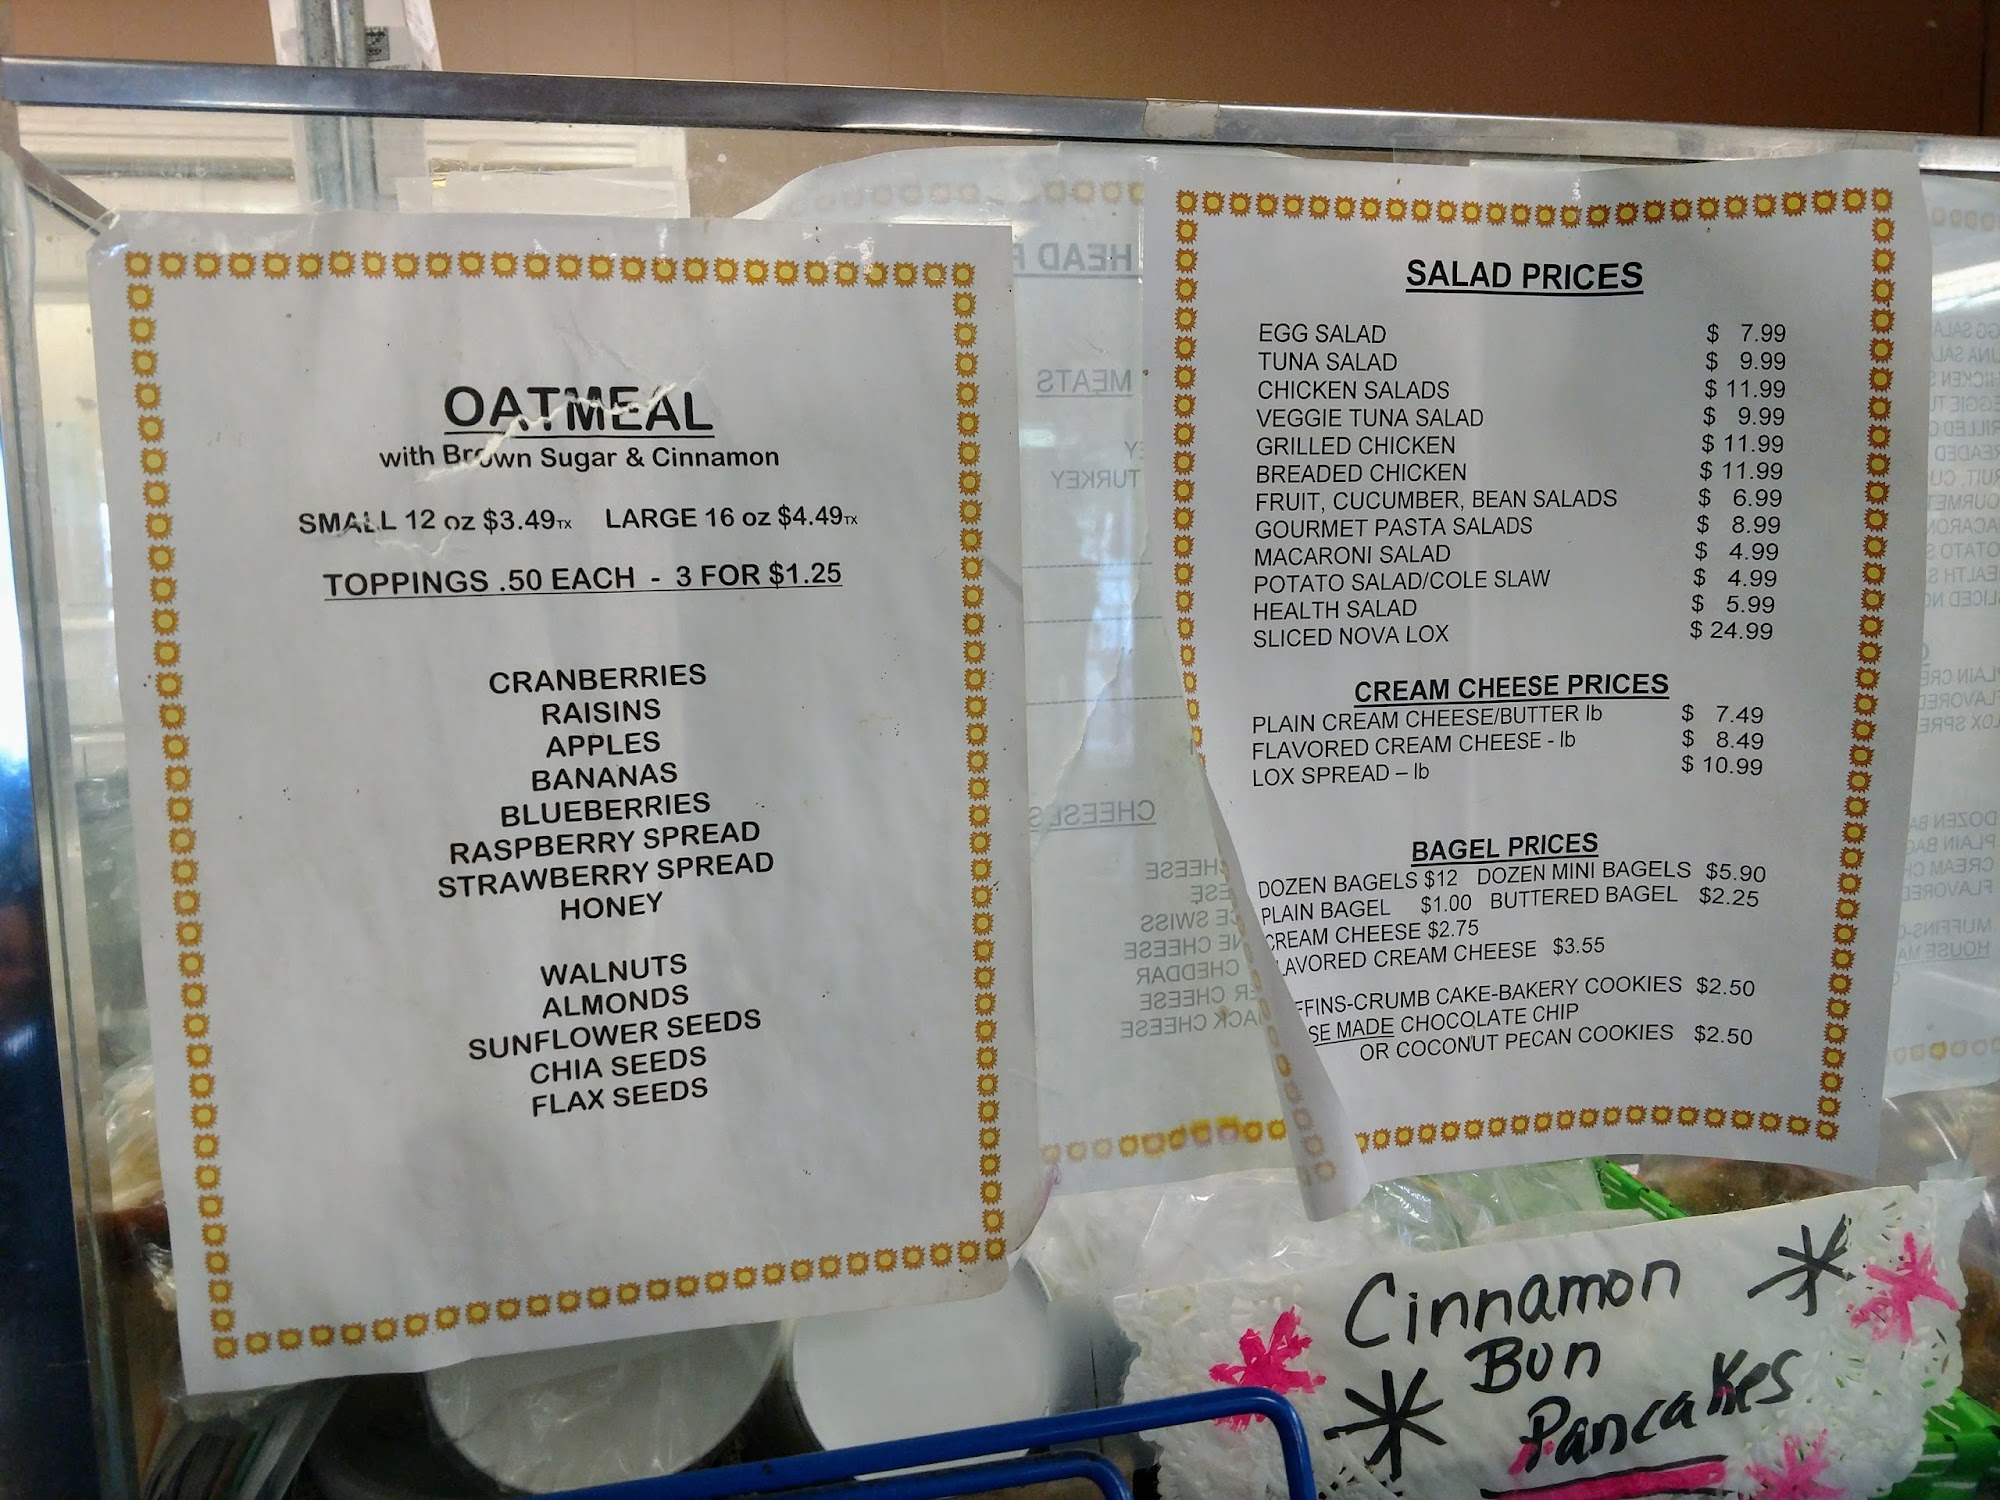 OATMEAL
with Brown Sugar & Cinnamon
SMALL 12 oz $3.49TX LARGE 16 oz $4.49TX
TOPPINGS .50 EACH - 3 FOR $1.25
CRANBERRIES
RAISINS
APPLES
BANANAS
BLUEBERRIES
RASPBERRY SPREAD
STRAWBERRY SPREAD
HONEY
WALNUTS
ALMONDS
SUNFLOWER SEEDS
CHIA SEEDS
FLAX SEEDS
HEAD
MEATS
TURKEY
CHEESES
CHEESE
SWISS
CHEESE
CHEDDAR
CHEESE
JACK CHEESE
SALAD PRICES
EGG SALAD $ 7.99
TUNA SALAD $ 9.99
CHICKEN SALADS $ 11.99
VEGGIE TUNA SALAD $ 9.99
GRILLED CHICKEN $ 11.99
BREADED CHICKEN $ 11.99
FRUIT, CUCUMBER, BEAN SALADS $ 6.99
GOURMET PASTA SALADS $ 8.99
MACARONI SALAD $ 4.99
POTATO SALAD/COLE SLAW $ 4.99
HEALTH SALAD $ 5.99
SLICED NOVA LOX $ 24.99
CREAM CHEESE PRICES
PLAIN CREAM CHEESE/BUTTER lb $ 7.49
FLAVORED CREAM CHEESE - lb $ 8.49
LOX SPREAD – lb $ 10.99
BAGEL PRICES
DOZEN BAGELS $12 DOZEN MINI BAGELS $5.90
PLAIN BAGEL $1.00 BUTTERED BAGEL $2.25
CREAM CHEESE $2.75
LAVORED CREAM CHEESE $3.55
FFINS-CRUMB CAKE-BAKERY COOKIES $2.50
SE MADE CHOCOLATE CHIP
OR COCONUT PECAN COOKIES $2.50
Cinnamon
Bun
Pancakes